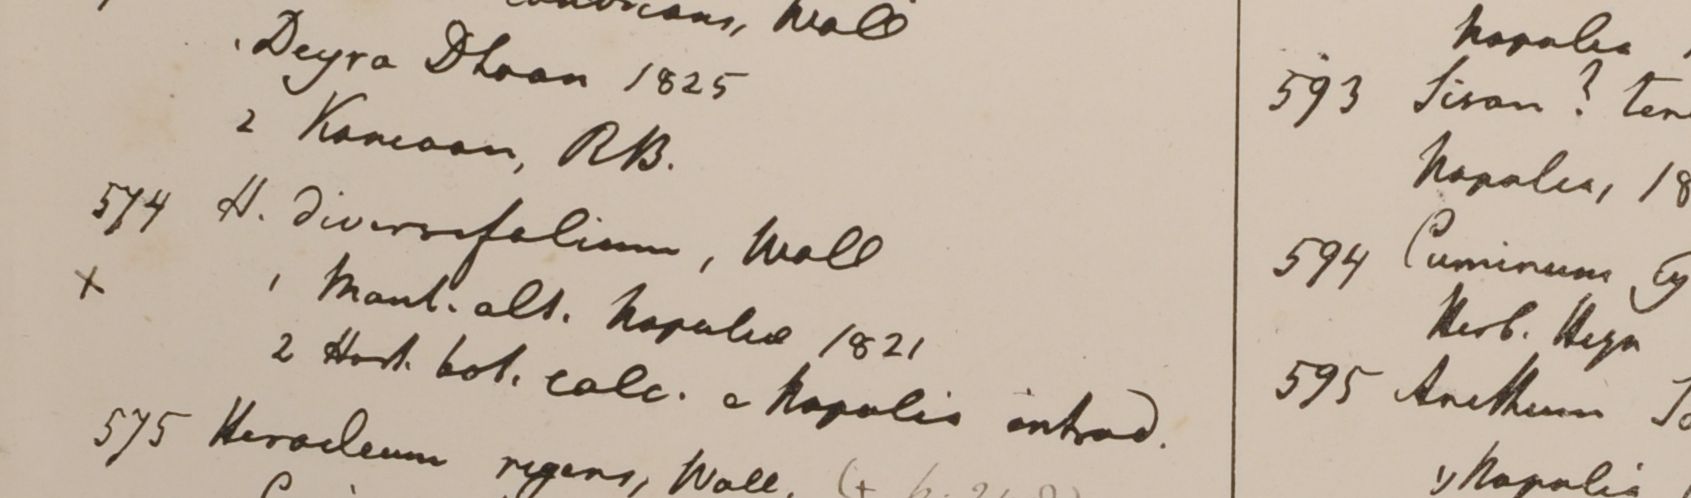 candicans, Wall
Deyra Dhoon 1825
2 Kamaon, RB.
574 H. diversifolium, Wall
+ 1 Mont. alt. Napaliae 1821
2 Hort. bot. calc. e Napalia introd.
575 Heracleum rigens, Wall.
Napalia
593 Sison ? ten
Napalia, 18
594 Cuminum Cy
Herb. Heyn
595 Anethum So
Napalia